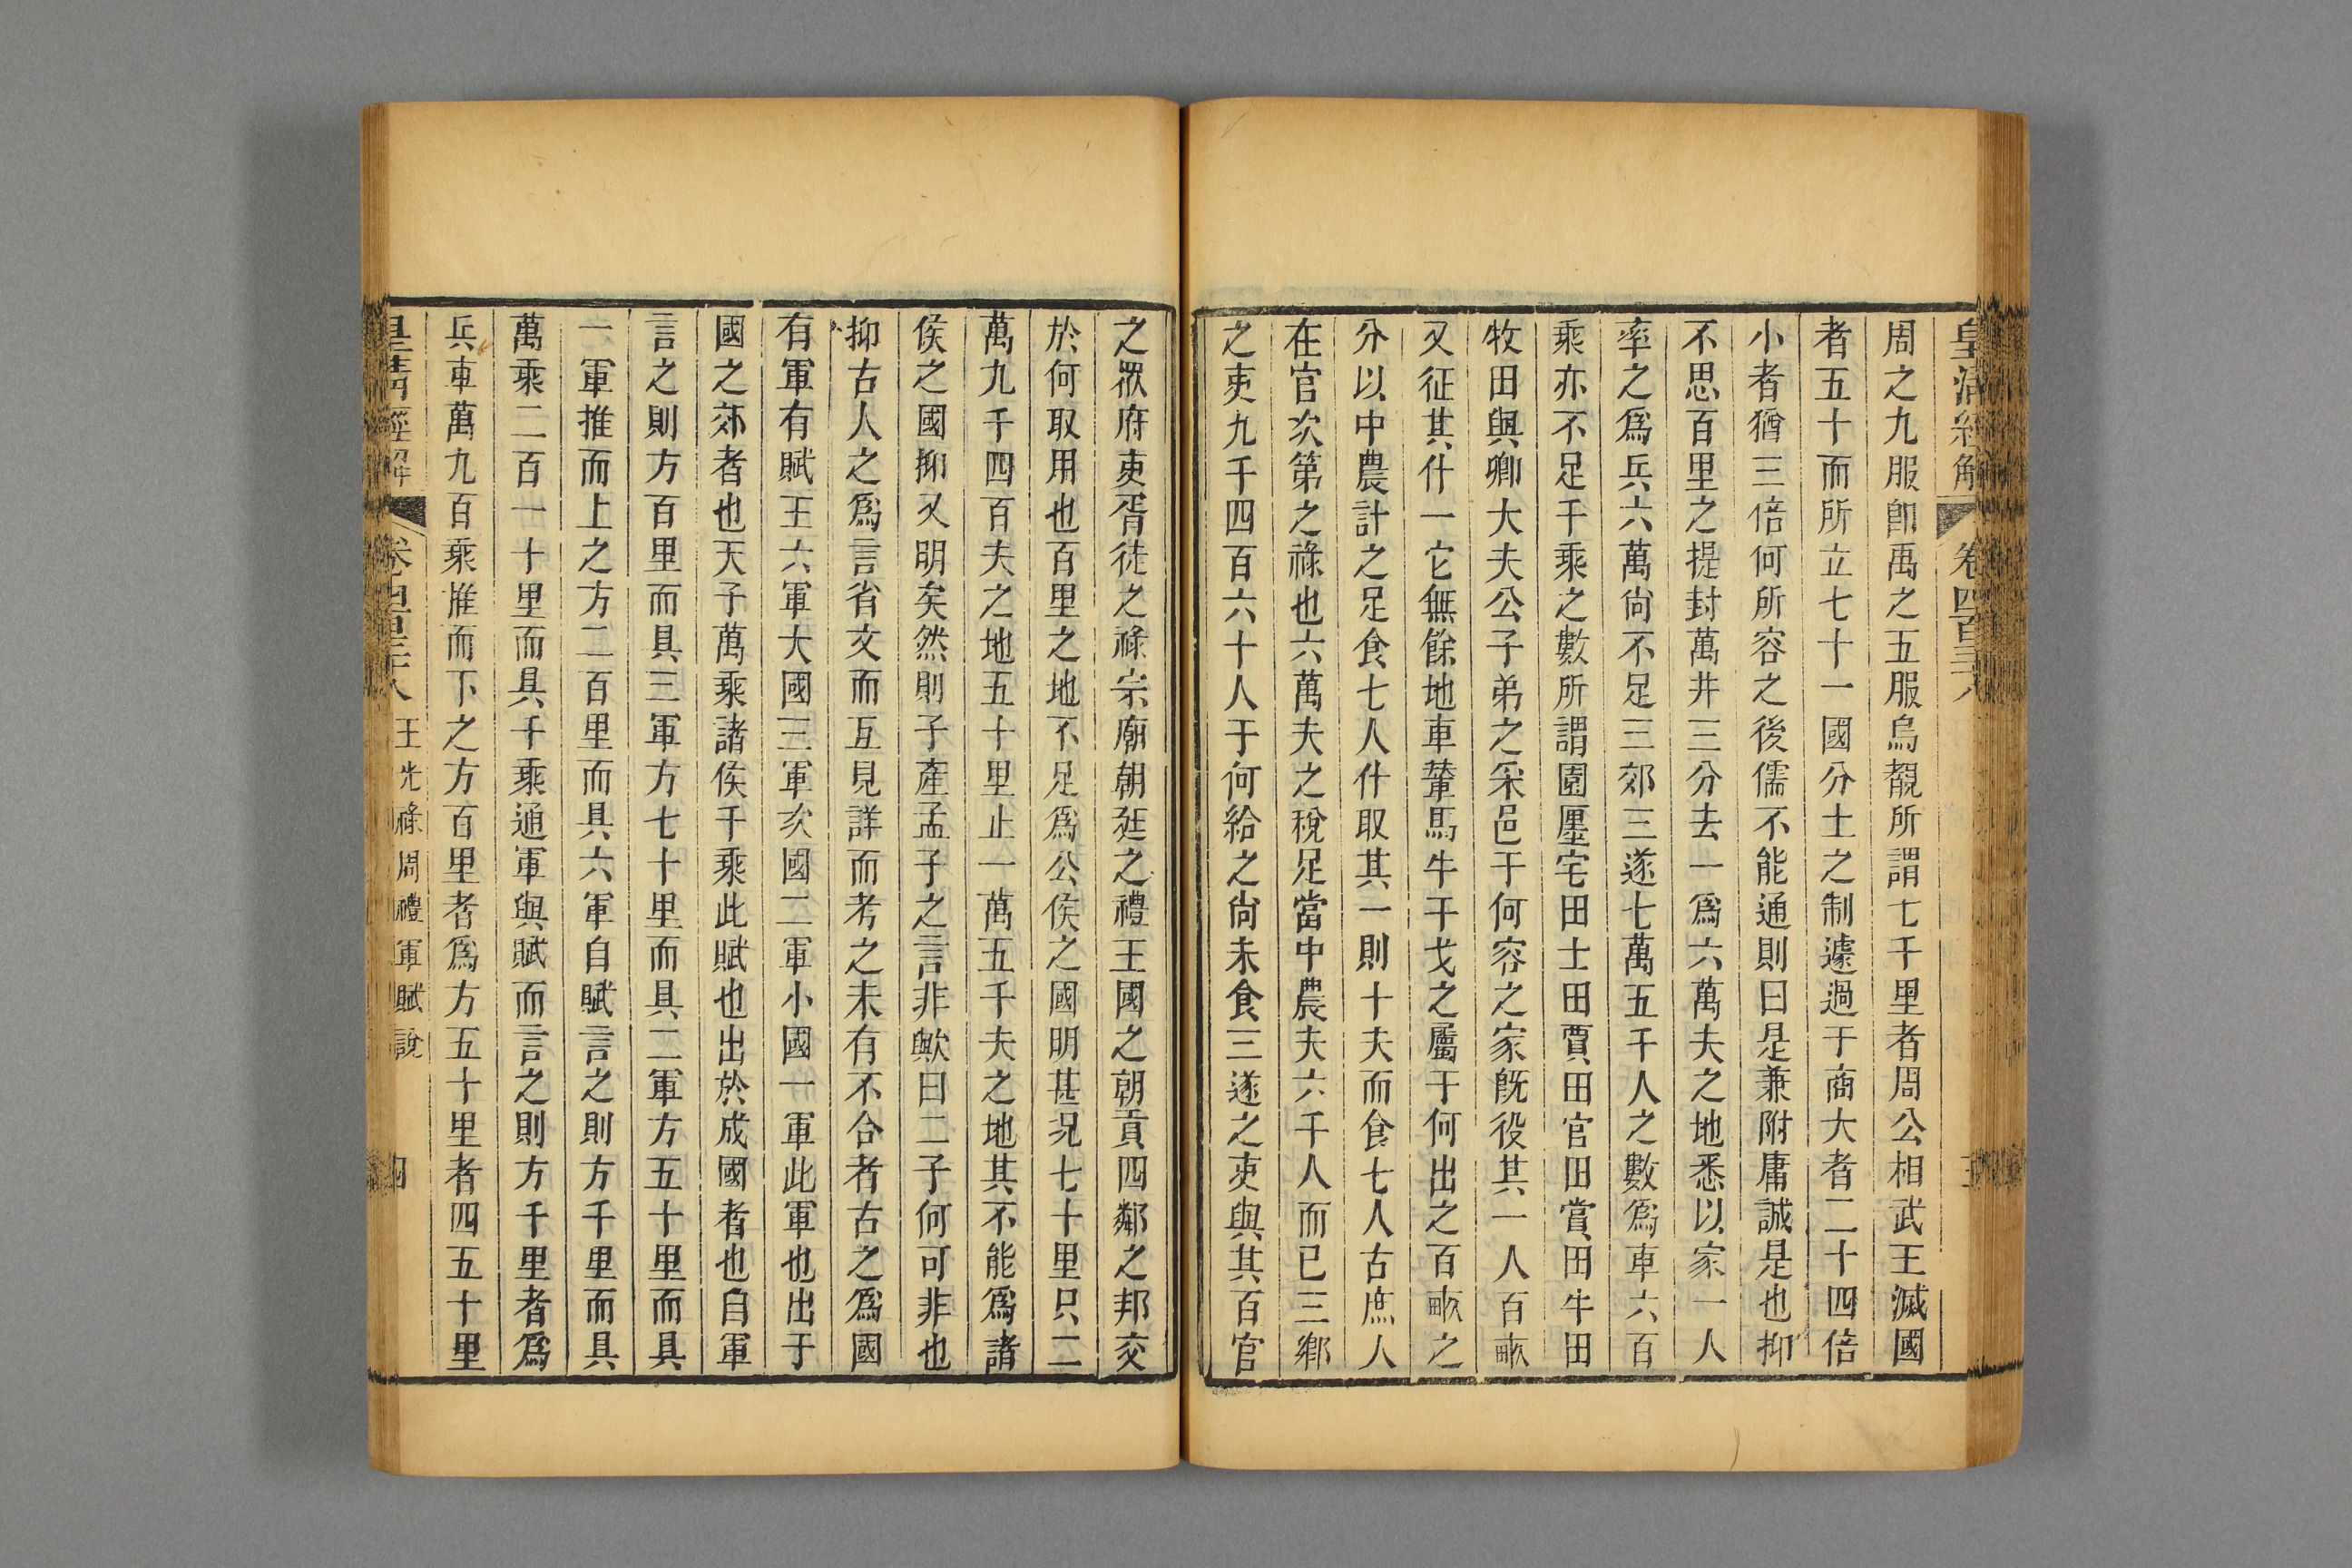 皇清經解 卷四百三十八
周之九服卽禹之五服烏覩所謂七千里者周公相武王滅國
者五十而所立七十一國分土之制遽過于商大者二十四倍
小者猶三倍何所容之後儒不能通則曰是兼附庸誠是也抑
不思百里之提封萬井三分去一爲六萬夫之地悉以家一人
率之爲兵六萬尙不足三郊三遂七萬五千人之數爲車六百
乘亦不足千乘之數所謂園廛宅田士田賈田官田賞田牛田
牧田與卿大夫公子弟之采邑于何容之家旣役其一人百畝
又征其什一它無餘地車輦馬牛干戈之屬于何出之百畝之
分以中農計之足食七人什取其一則十夫而食七人古庶人
在官次第之祿也六萬夫之稅足當中農夫六千人而已三鄉
之吏九千四百六十人于何給之尙未食三遂之吏與其百官
之眾府吏胥徒之祿宗廟朝廷之禮王國之朝貢四鄰之邦交
於何取用也百里之地不足爲公侯之國明甚况七十里只二
萬九千四百夫之地五十里止一萬五千夫之地其不能爲諸
侯之國抑又明矣然則子產孟子之言非歟曰二子何可非也
抑古人之爲言省文而互見詳而考之未有不合者古之爲國
有軍有賦王六軍大國三軍次國二軍小國一軍此軍也出于
國之郊者也天子萬乘諸侯千乘此賦也出於成國者也自軍
言之則方百里而具三軍方七十里而具二軍方五十里而具
一軍推而上之方二百里而具六軍自賦言之則方千里而具
萬乘二百一十里而具千乘通軍與賦而言之則方千里者爲
兵車萬九百乘推而下之方百里者爲方五十里者四五十里
皇清經解 卷四百三十八 王光祿周禮軍賦說 四